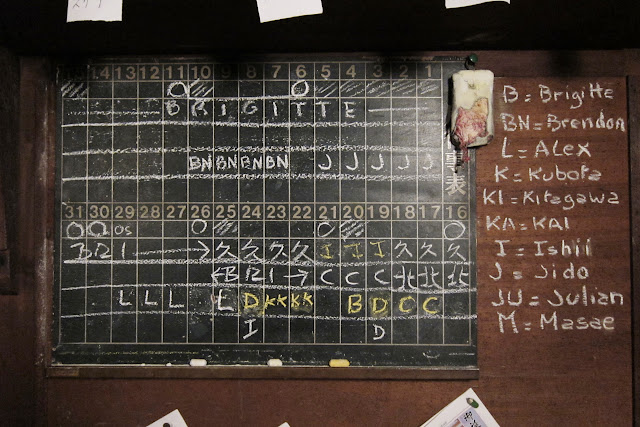 15 14 13 12 11 10 9 8 7 6 5 4 3 2 1
B R I G I T T E
BN BN BN BN J J J J J
表
31 30 29 28 27 26 25 24 23 22 21 20 19 18 17 16
OS
BRI → 久 久 久 久 I I I 久 久 久
← BRI → C C C 北 北 北
L L L L D KK KK B D C C
I D
B = Brigitte
BN = Brendon
L = Alex
K = Kubota
KI = Kitagawa
KA = KAI
I = Ishii
J = Jido
JU = Julian
M = Masae